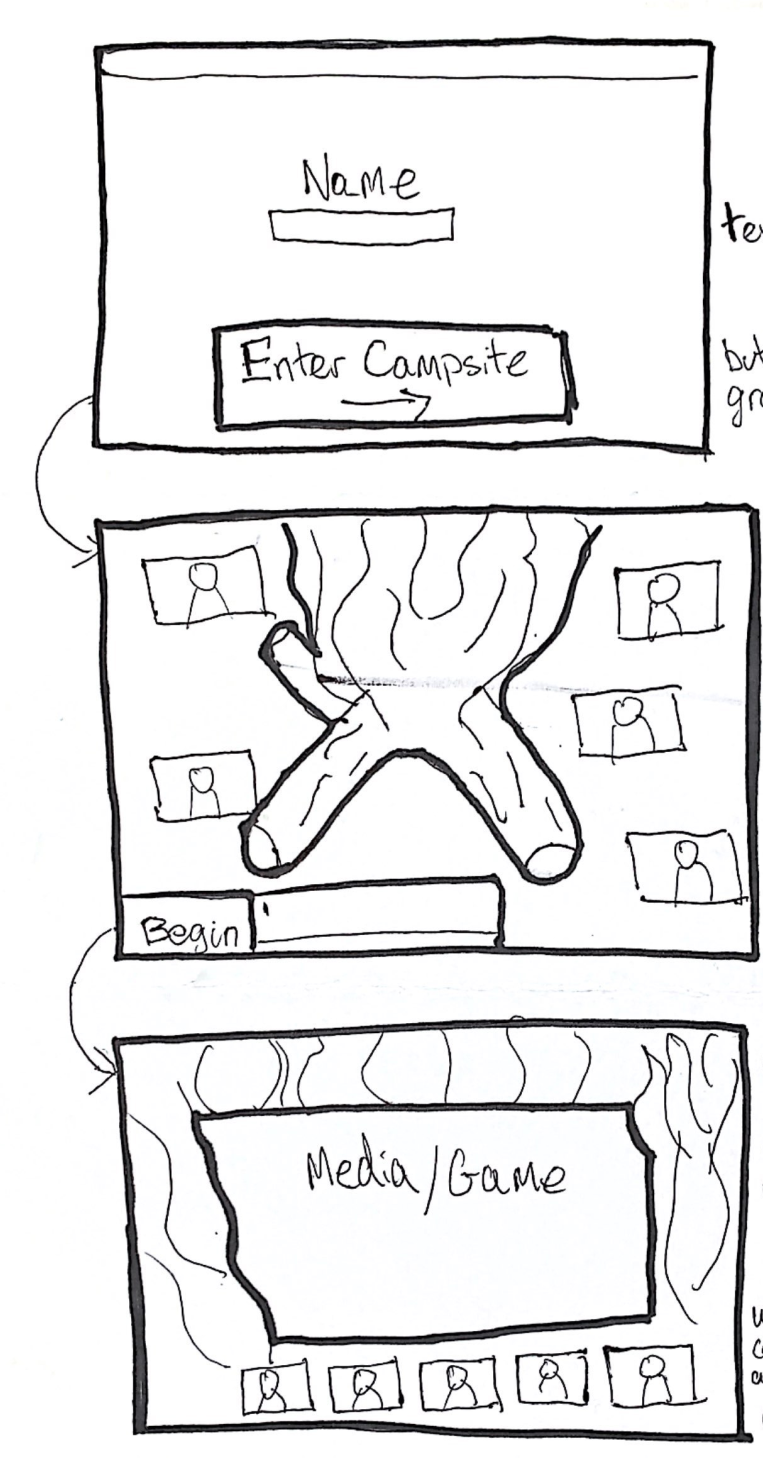 Name
Enter Campsite
Begin
Media/Game